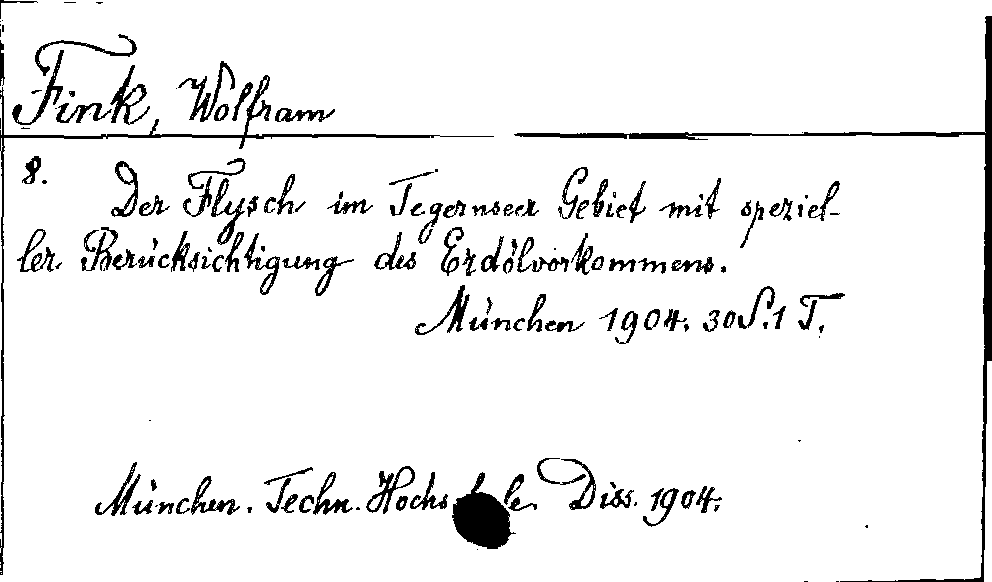 Fink, Wolfram
8. Der Flysch im Tegernseer Gebiet mit speziel-
ler Berücksichtigung des Erdölvorkommens.
München 1904. 30 S. 1 T.
München. Techn. Hochschule. Diss. 1904.